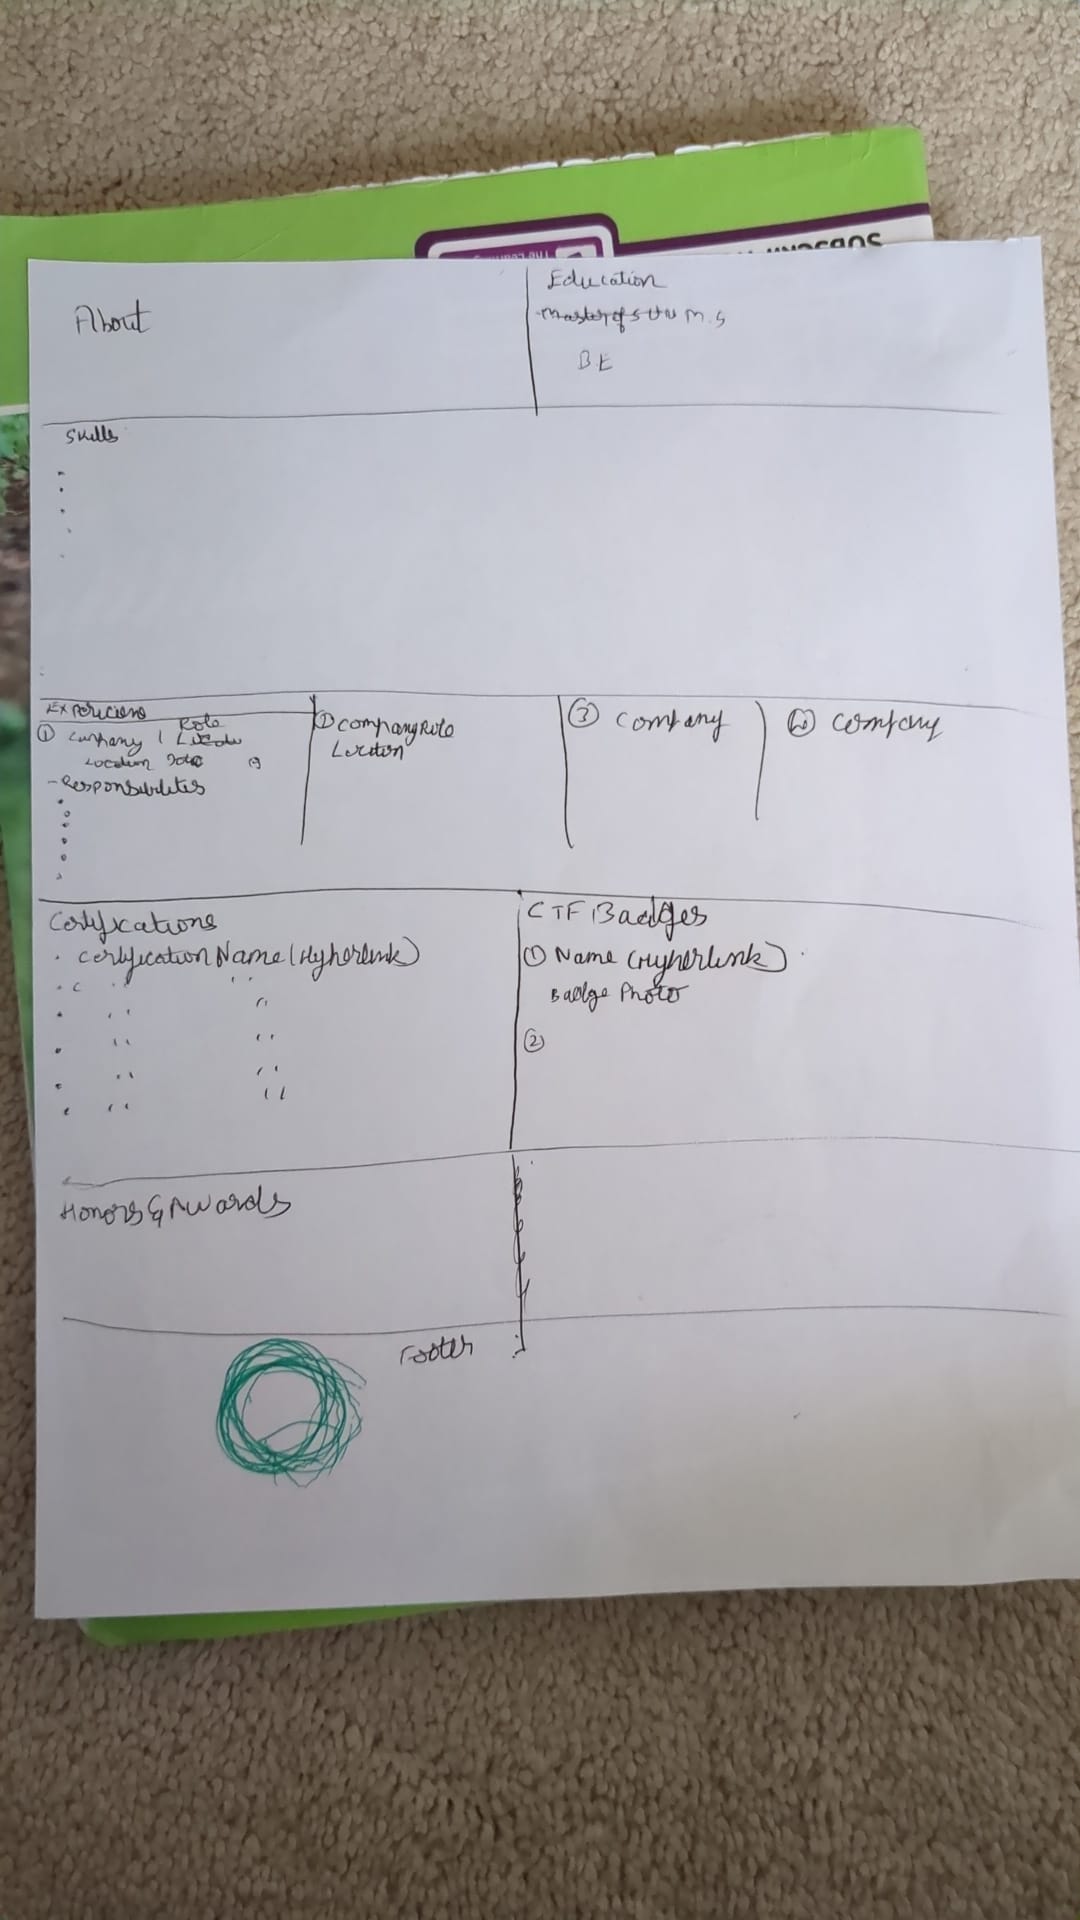 About
Education
M.S
B.E
Skills
Experience
① Company | Role
Location Date
- Responsibilites
② Company Role
Location
③ Company
④ Company
Certifications
· Certification Name (Hyperlink)
CTF Badges
① Name (Hyperlink)
Badge Photo
②
Honors & Awards
Footer